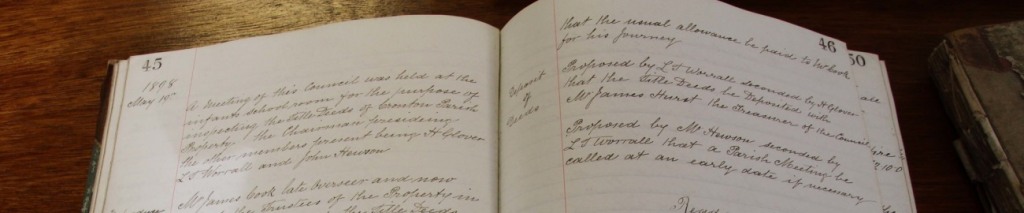 45
1898
May 19th
A meeting of this Council was held at the
infants schoolroom for the purpose of
inspecting the Title Deeds of Croxton Parish
Property, the Chairman presiding
The other members present being H Glover
L T Worrall and John Hewson
Mr James Cook late Overseer and now
the Trustees of the Property in
the Title Deeds
46
that the usual allowance be paid to W Cook
for his journey
Deposit
of
Deeds
Proposed by L T Worrall seconded by H Glover
that the Title Deeds be Deposited with
Mr James Hurst the Treasurer of the Council
Proposed by Mr Hewson seconded by
L T Worrall that a Parish Meeting be
called at an early date if necessary
50